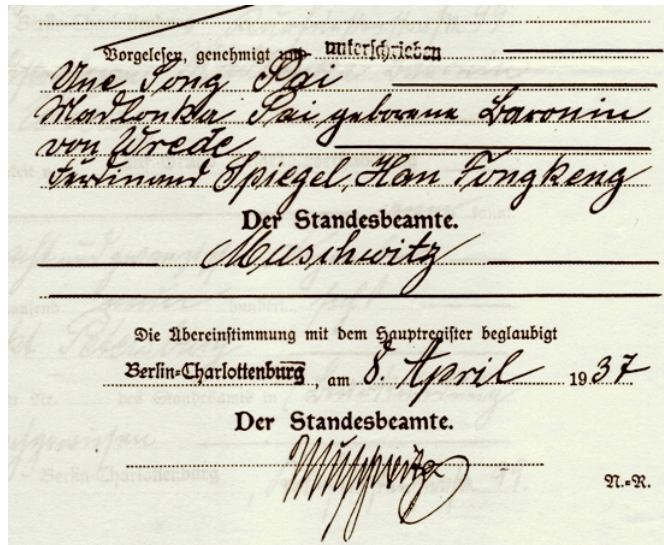 Vorgelesen, genehmigt und unterschrieben
Une Song Pai
Madlonka Pai geborene Baronin
von Wrede
Ferdinand Spiegel, Han Tongkeng
Der Standesbeamte.
Muschwitz
Die Übereinstimmung mit dem Hauptregister beglaubigt
Berlin-Charlottenburg, am 8. April 1937
Der Standesbeamte.
Muschwitz
N.-R.